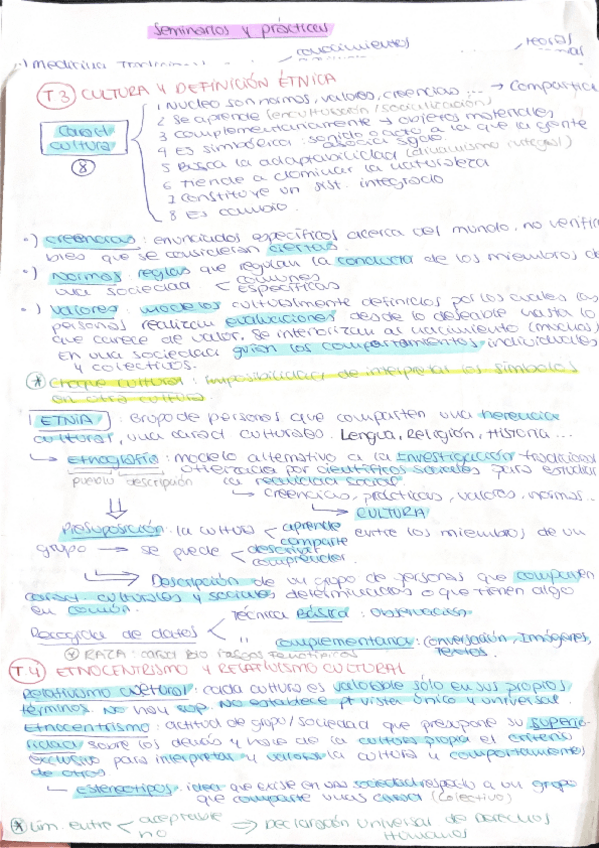 Seminarios y prácticas
conocimientos
T3 CULTURA Y DEFINICIÓN ÉTNICA
1 Nucleo son normas, valores, creencias ... → Compartida
2 Se aprende (enculturación/socialización)
3 complementariamente → objetos materiales
4 Es simbólica: sonido o acto a la que la gente
asocia sgdo
5 Busca la adaptabilidad
6 Tiende a dominar la naturaleza
7 Constituye un sist. integrado
8 Es cambio.
Caract
cultura
8
·) creencias: enunciados específicos acerca del mundo, no
bles que se consideran ciertas.
·) Normas: reglas que regulan la conducta de los miembros de
una sociedad < comunes
específicas
·) Valores: modelos culturalmente definidos por los cuales las
personas realizan evaluaciones desde lo deseable hasta lo
que carece de valor. Se interiorizan al nacimiento (muchos)
En una sociedad guían los comportamientos individuales
y colectivos.
* Choque cultural: imposibilidad de interpretar los símbolos
en otra cultura.
ETNIA: Grupo de personas que comparten una herencia
cultural, una caract culturales. Lengua, Religión, Historia ...
↳ etnografía: modelo alternativo a la investigación tradicional
utilizada por científicos sociales para estudiar
pueblo descripción la realidad social.
↳ creencias, prácticas, valores, normas...
↳ CULTURA
⇓
Presuposición: la cultura < aprende entre los miembros de un
comparte
grupo → se puede < describir
comprender
↳ Descripción de un grupo de personas que comparten
caract. culturales y sociales determinadas o que tienen algo
en común.
Recogida de datos < Técnica Básica: Observación
" complementaria: conversación, Imágenes,
Textos.
* RAZA: caract BIO rasgos fenotípicos
T4 ETNOCENTRISMO Y RELATIVISMO CULTURAL
Relativismo cultural: cada cultura es valorable sólo en sus propios
términos. No hay sup. No establece pt vista único y universal.
Etnocentrismo: actitud de grupo/sociedad que presupone su superio-
ridad sobre los demás y hace de la cultura propia el criterio
exclusivo para interpretar y valorar la cultura y comportamientos
de otros
↳ estereotipos: idea que existe en una sociedad respecto a un grupo
que comparte unas caract (colectivo)
* Lím. entre < aceptable ⇒ Declaración Universal de Derechos
no Humanos